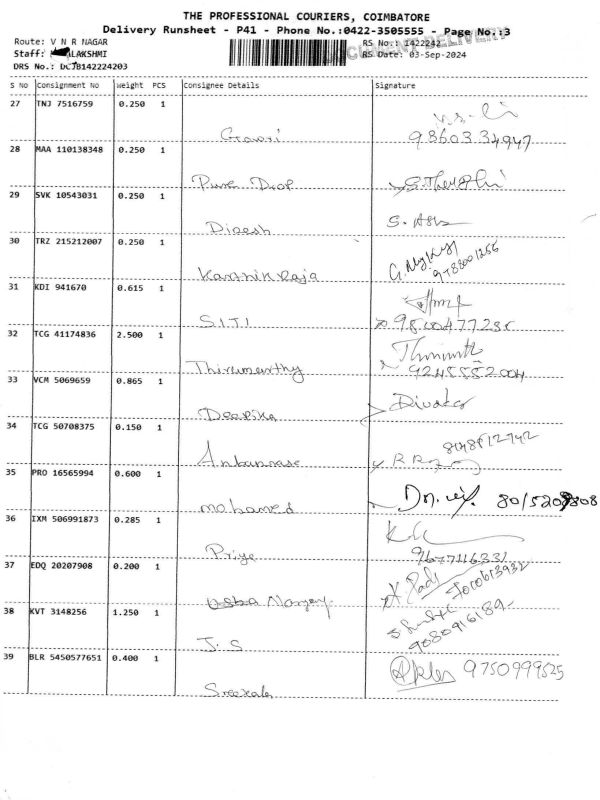 THE PROFESSIONAL COURIERS, COIMBATORE
Delivery Runsheet - P41 - Phone No.:0422-3505555 - Page No.:3
DOCUMENT DELIVERY
Route: V N R NAGAR RS No.: 1422242
Staff: ALAKSHMI RS Date: 03-Sep-2024
DRS No.: DCJB142224203
S No Consignment No Weight PCS Consignee Details Signature
27 TNJ 7516759 0.250 1
Gowri 9860334947
28 MAA 110138348 0.250 1
Pure Drop
29 SVK 10543031 0.250 1
Dinesh S. Asha
30 TRZ 215212007 0.250 1
Karthik Raja 9788001266
31 KDI 941670 0.615 1
S.I.T.I
32 TCG 41174836 2.500 1
Thirumoorthy 9245552004
33 VCM 5069659 0.865 1
Deepika Divakar
34 TCG 50708375 0.150 1
8148612742
35 PRO 16565994 0.600 1
mohamed
36 IXM 506991873 0.285 1
Priya 9677116331
37 EDQ 20207908 0.200 1
38 KVT 3148256 1.250 1
J.S 9080916189
39 BLR 5450577651 0.400 1
9750999525